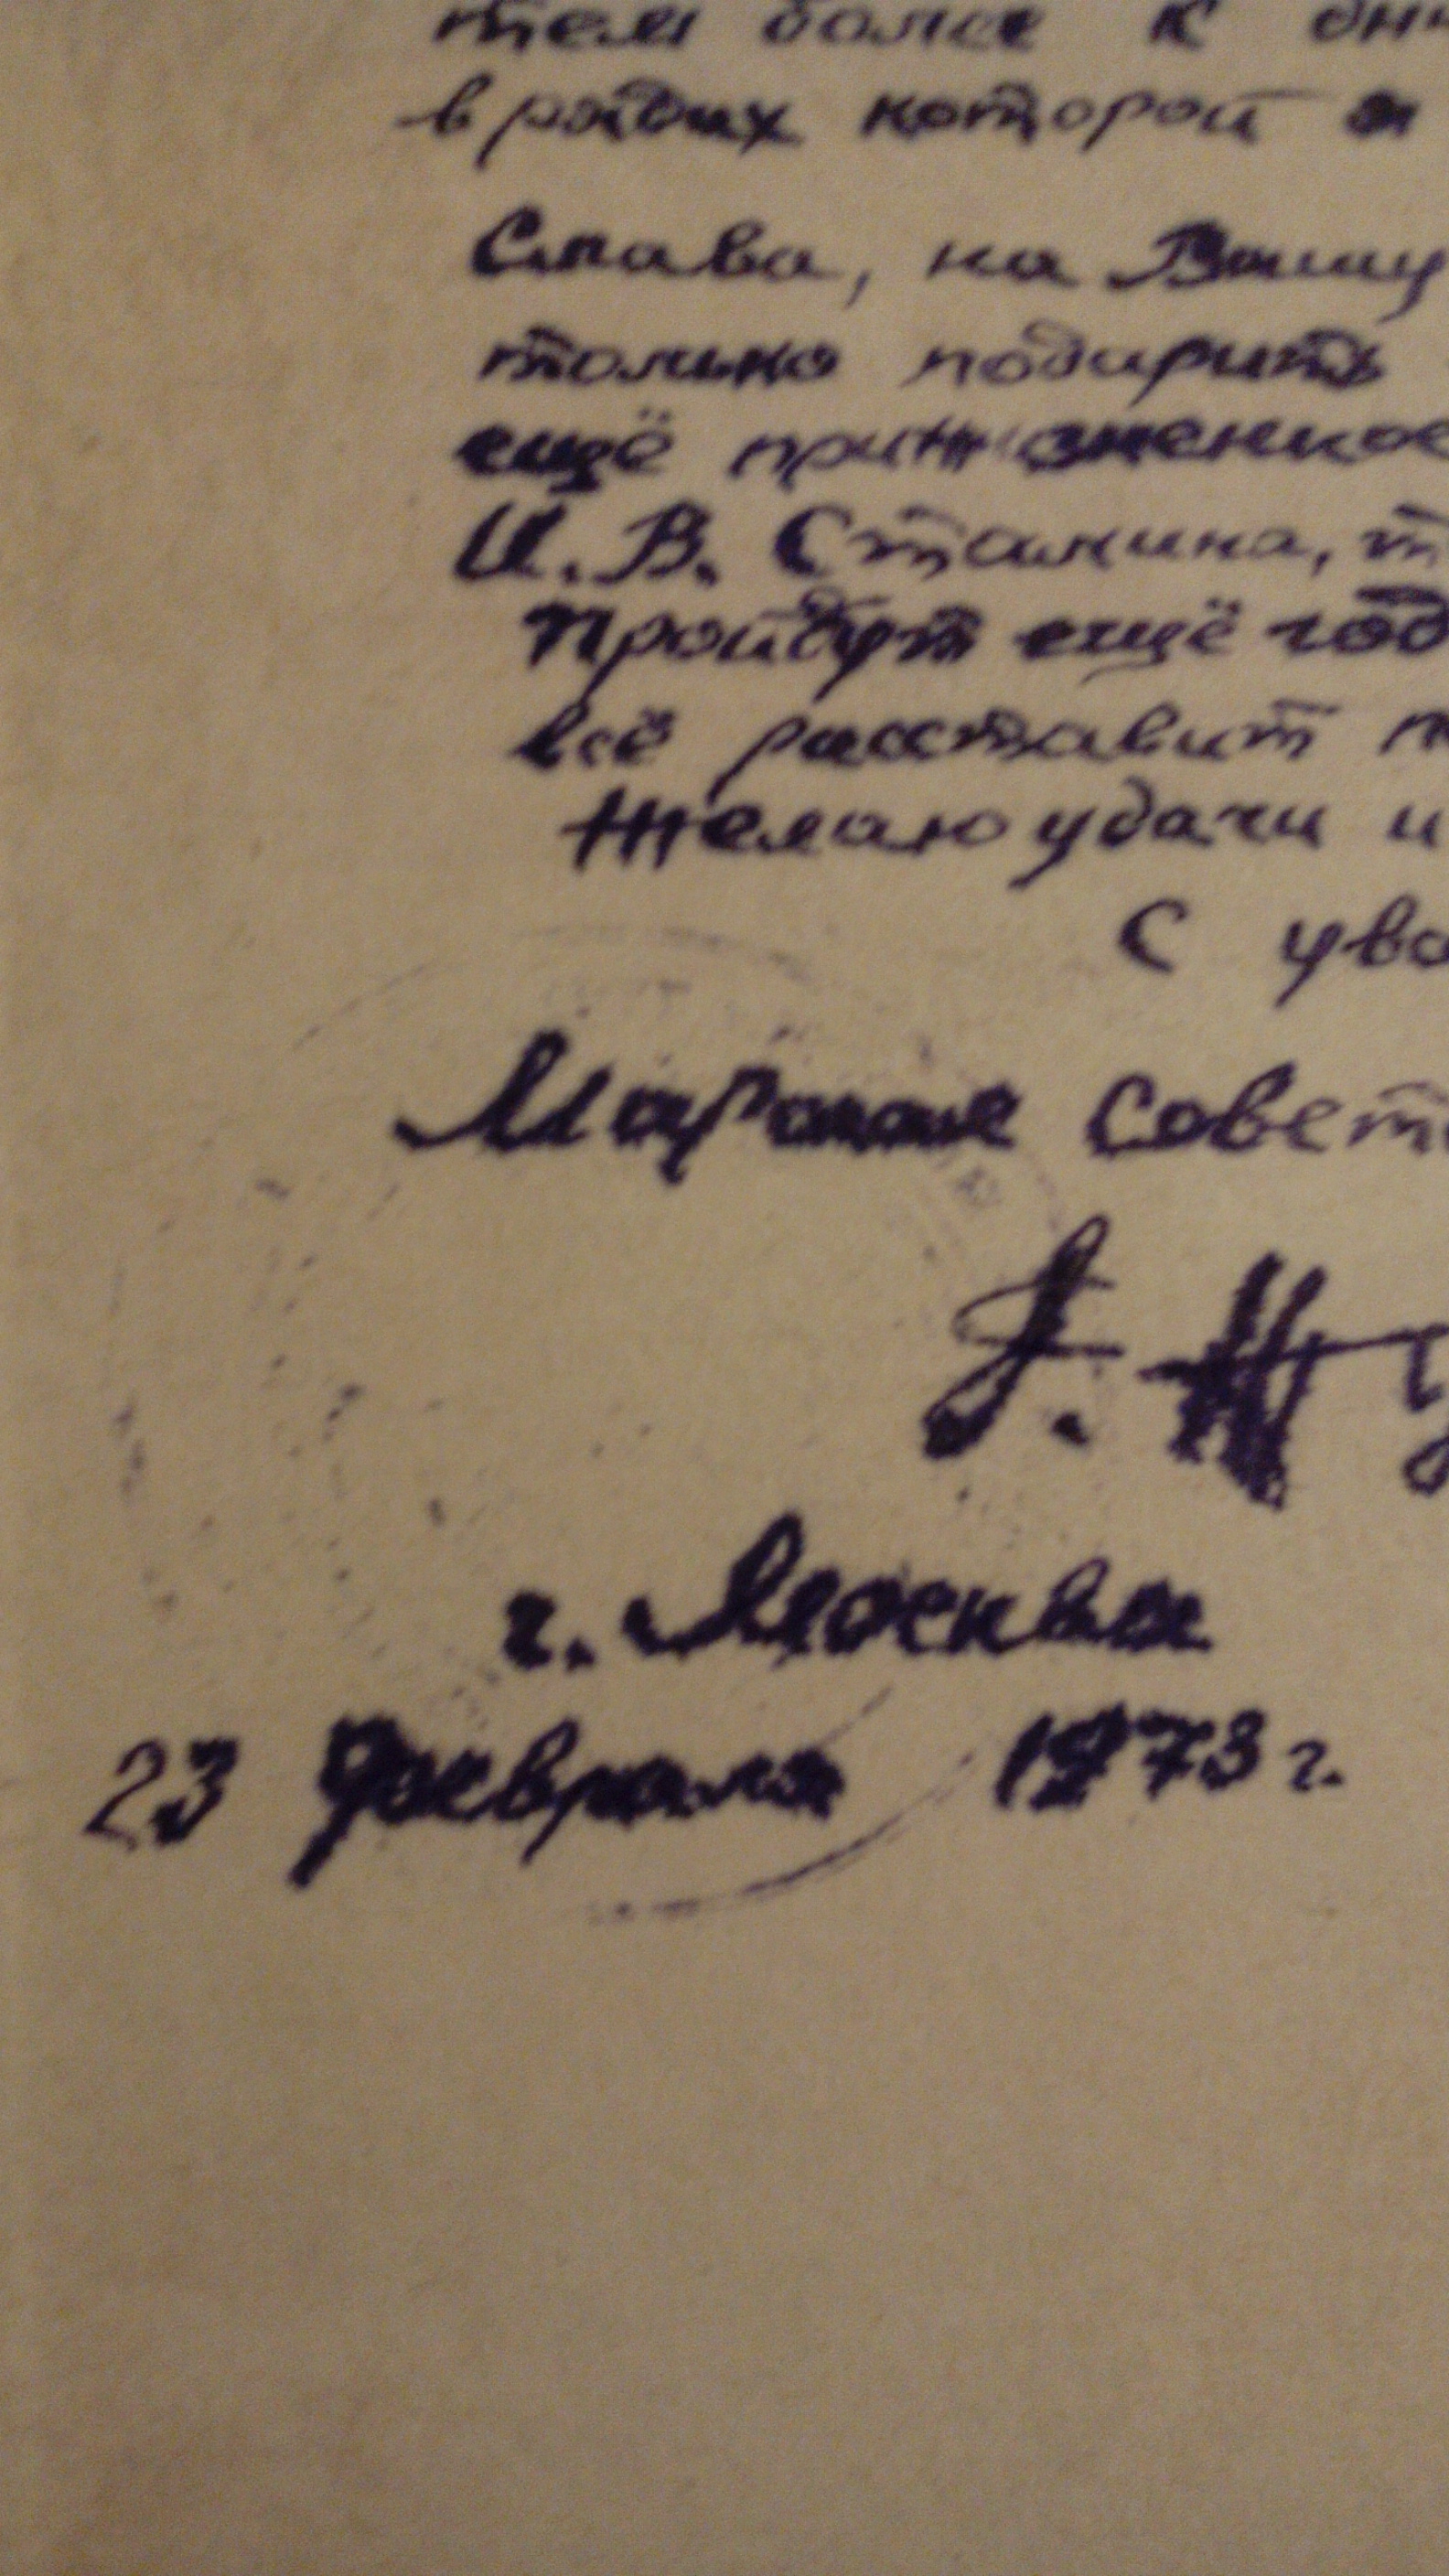 тем более к
в рядах которой я
Слава, на Вашу
только подарить
ещё прижизненное
И. В. Сталина, т
Пройдут ещё год
всё расставит п
Желаю удачи и
С ува
Маршал Совет
Г. Жу
г. Москва
23 февраля 1973 г.